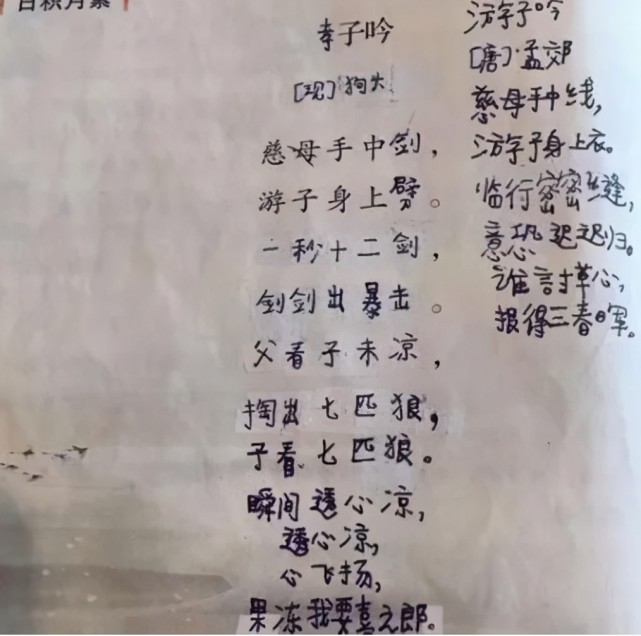 日积月累
孝子吟
[现]狗头
慈母手中剑，
游子身上劈。
一秒十二剑，
剑剑出暴击。
父看子未凉，
掏出七匹狼，
子看七匹狼。
瞬间透心凉，
透心凉，
心飞扬，
果冻我要喜之郎。
游子吟
[唐]孟郊
慈母手中线，
游子身上衣。
临行密密缝，
意恐迟迟归。
谁言寸草心，
报得三春晖。